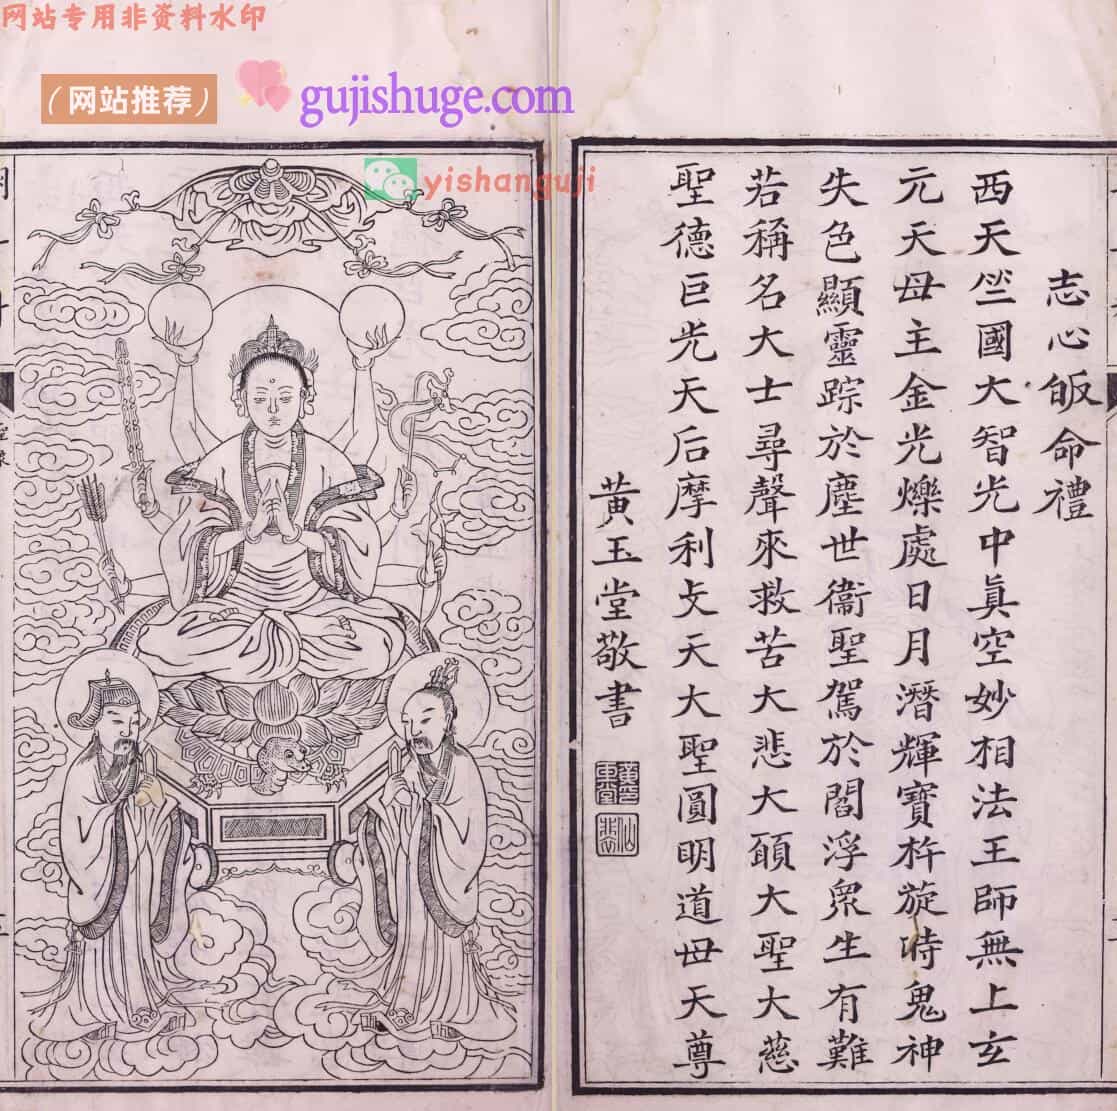 网站专用非资料水印
(网站推荐)
gujishuge.com
yishanguji
志心皈命禮
西天竺國大智光中眞空妙相法王師無上玄
元天母主金光爍處日月潛輝寶杵旋時鬼神
失色顯靈踪於塵世衞聖駕於閻浮衆生有難
若稱名大士尋聲來救苦大悲大願大聖大慈
聖德巨光天后摩利攴天大聖圓明道母天尊
黄玉堂敬書